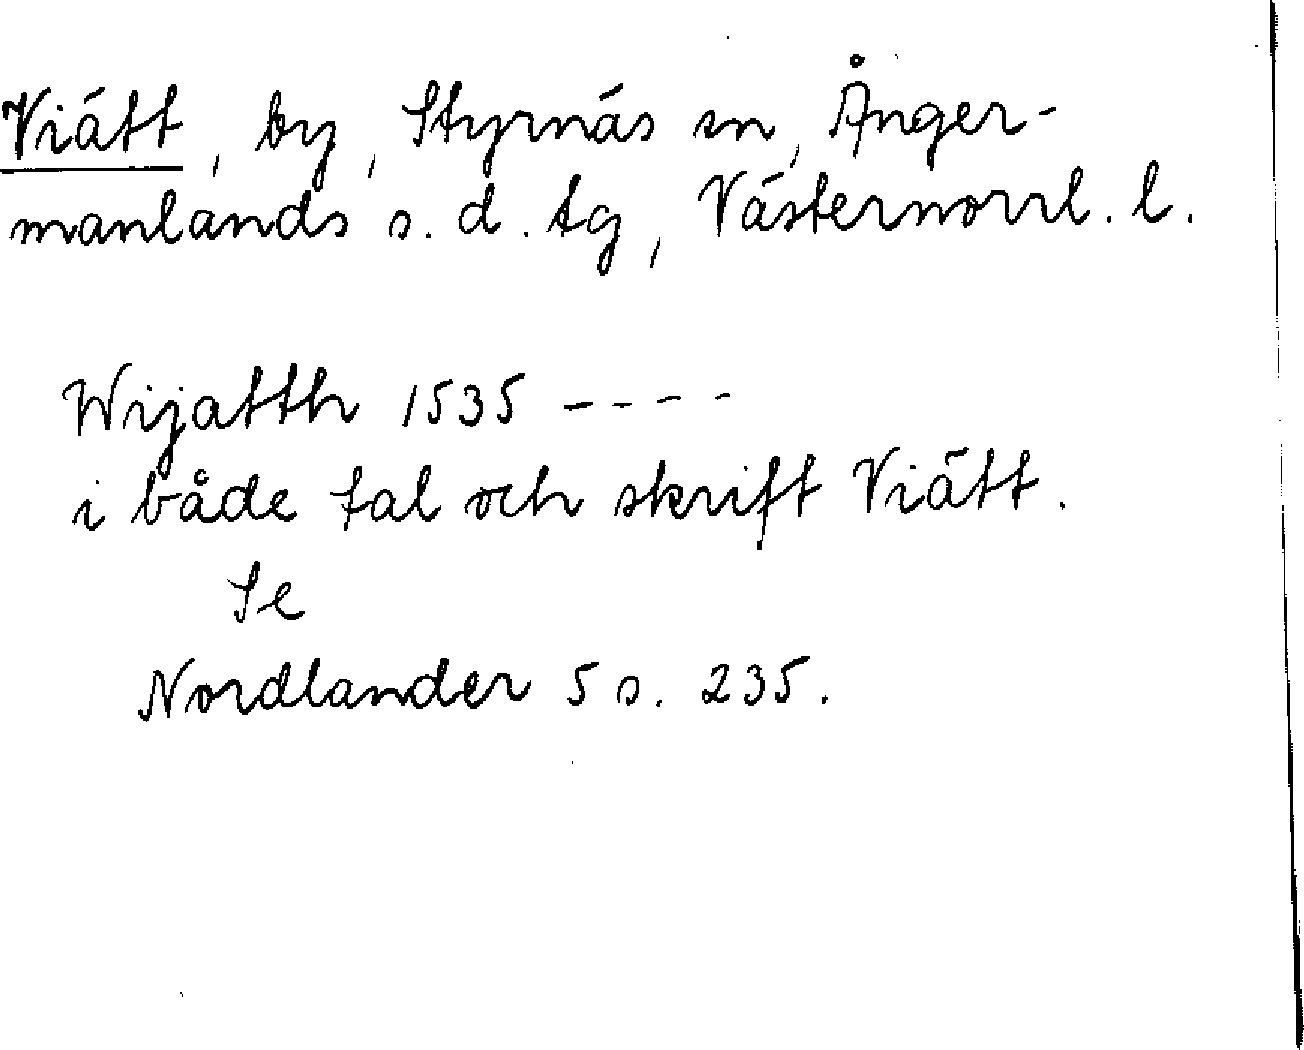 Viätt, by, Styrnäs sn, Ånger-
manlands s. d. tg, Västernorrl. l.
Wijatth 1535 ----
i både tal och skrift Viätt.
Se
Nordlander 5 s. 235.